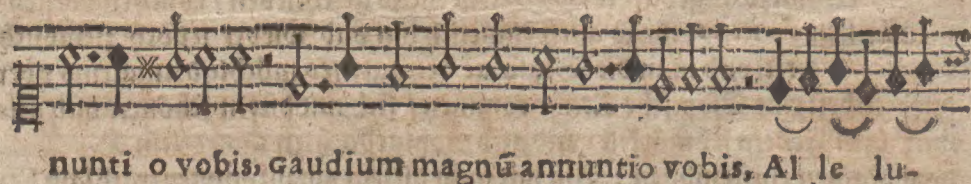 nunti o vobis, Gaudium magnū annuntio vobis, Al le lu-